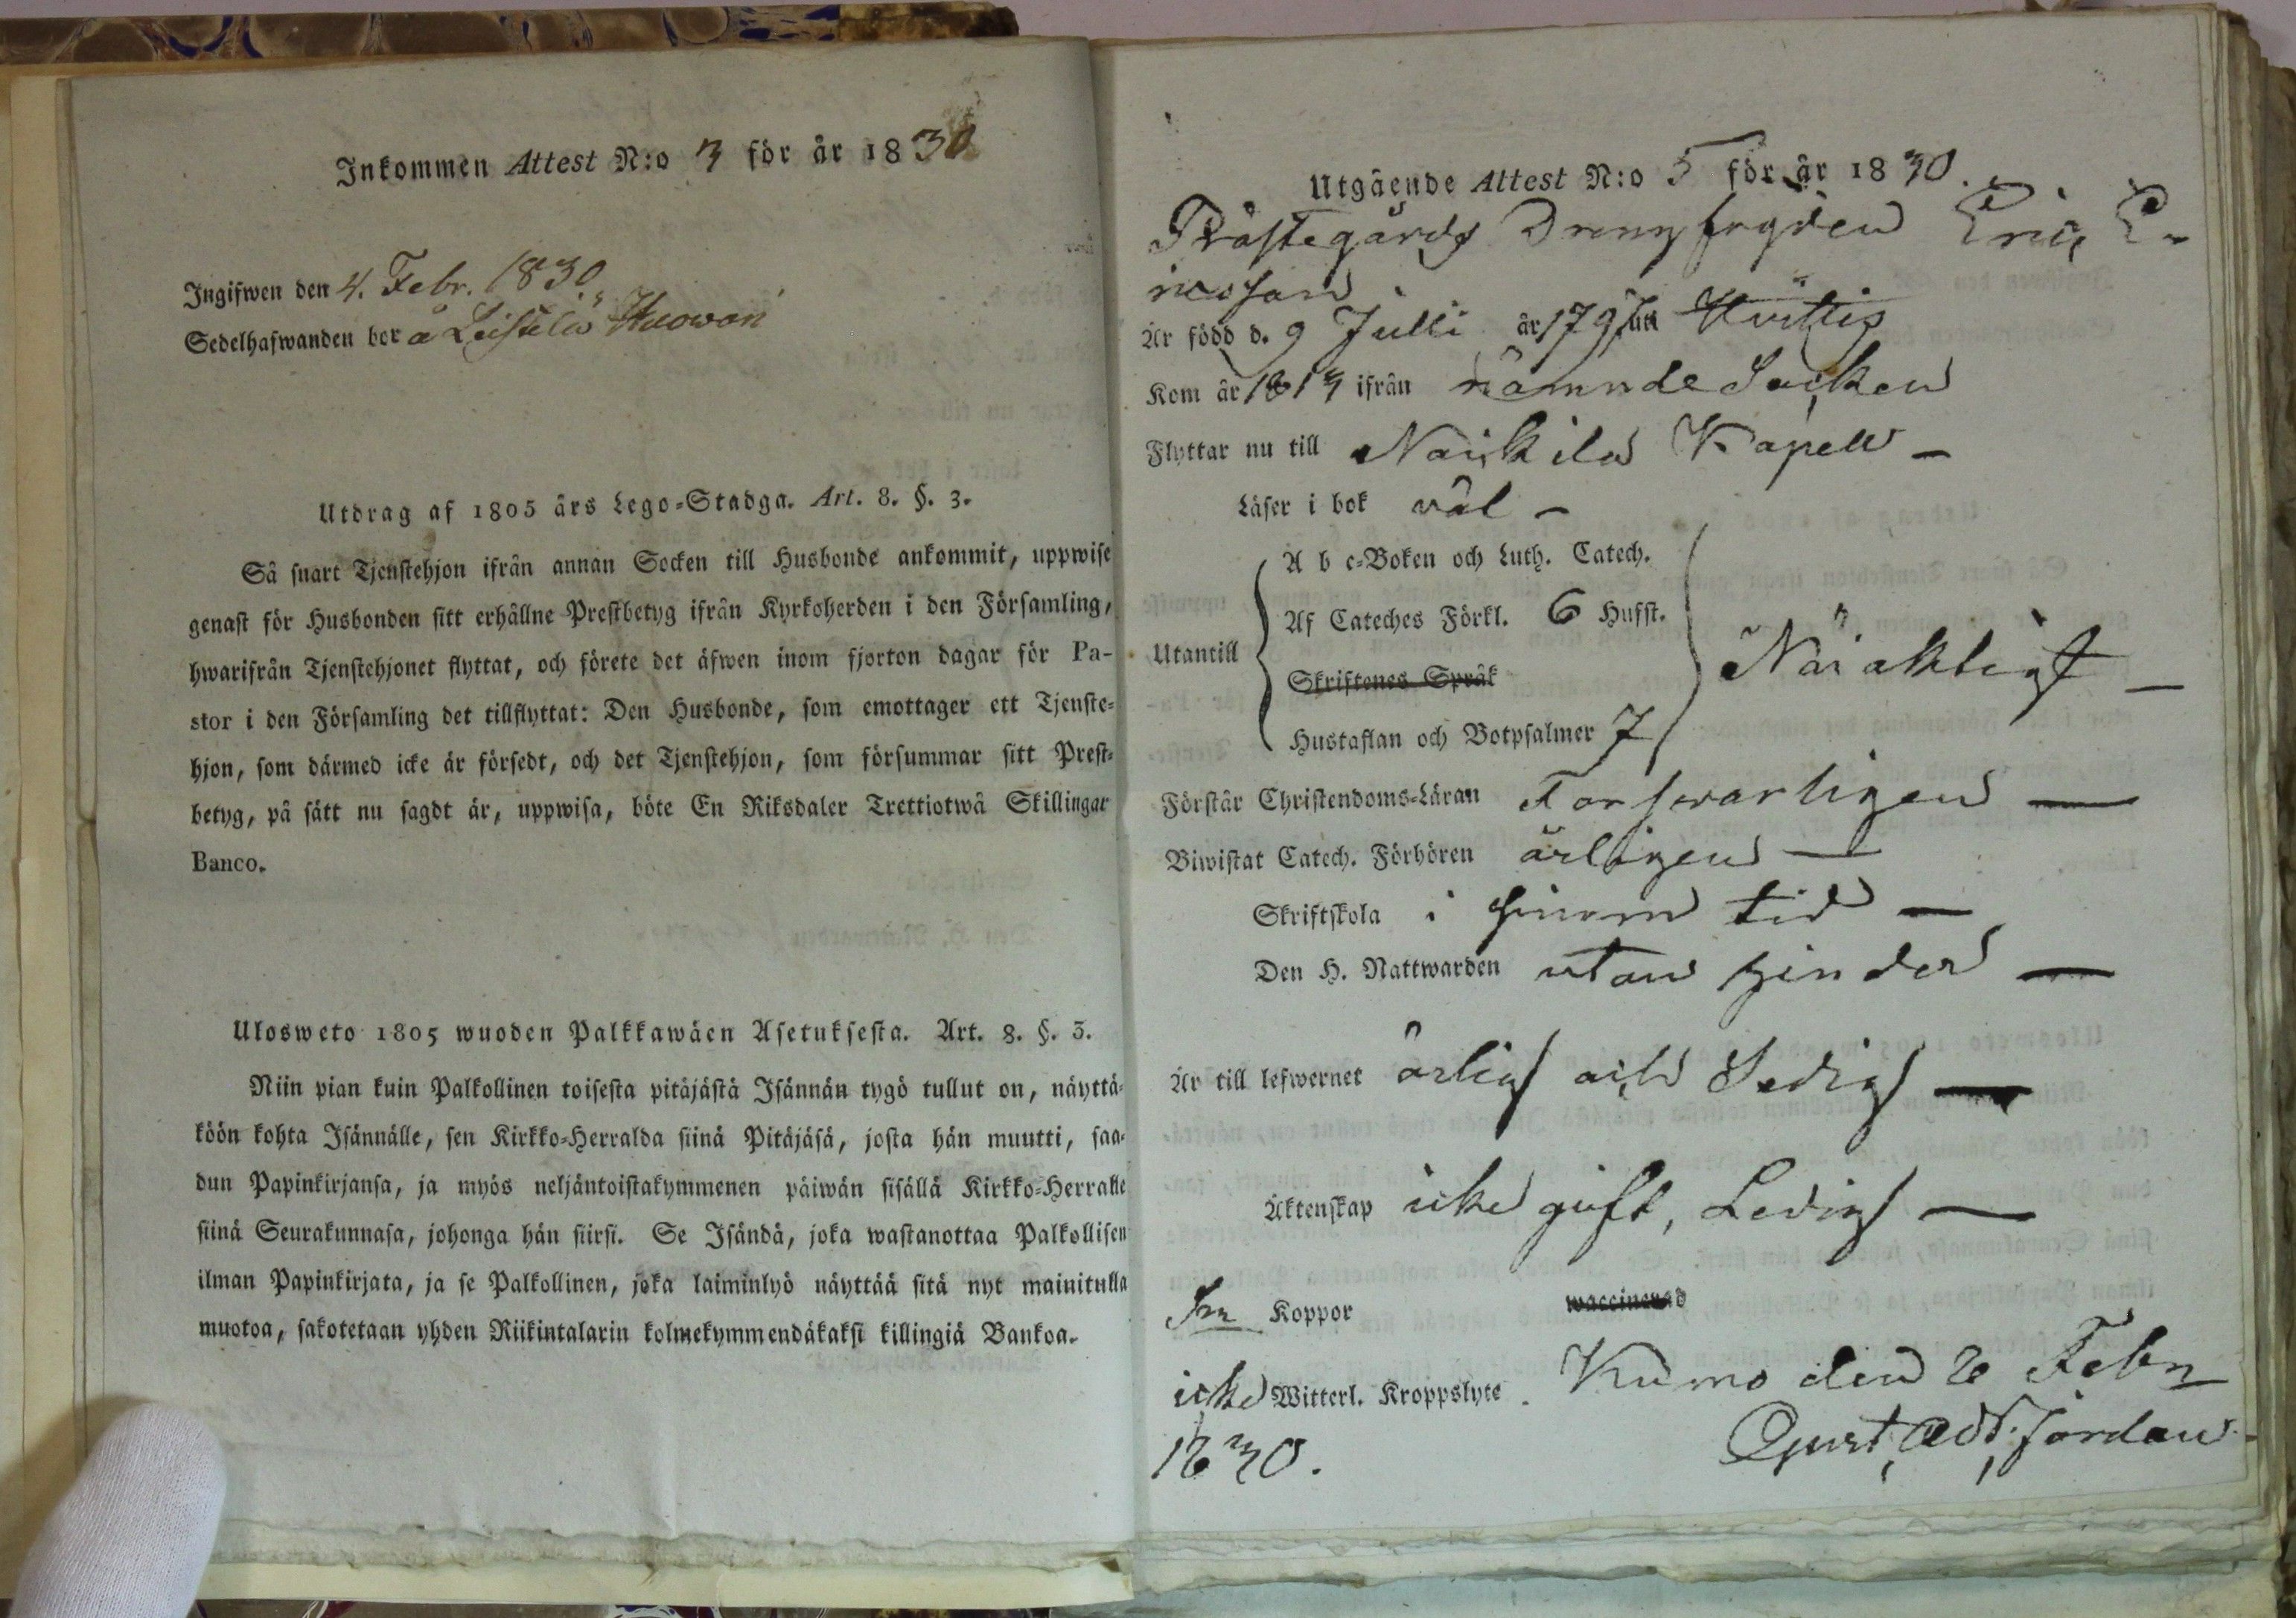 Inkommen Attest N:o 3 för år 1830
Ingifwen den 4. Febr. 1830
Sedelhafwanden bor å Leistilä Huowari
Utdrag af 1805 års Lego-Stadga. Art. 8. §. 3.
Så snart Tjenstehjon ifrån annan Socken till Husbonde ankommit, uppwise
genast för Husbonden sitt erhållne Prestbetyg ifrån Kyrkoherden i den Församling,
hwarifrån Tjenstehjonet flyttat, och förete det äfwen inom fjorton dagar för Pa-
stor i den Församling det tillflyttat: Den Husbonde, som emottager ett Tjenste-
hjon, som därmed icke är försedt, och det Tjenstehjon, som försummar sitt Prest-
betyg, på sätt nu sagdt är, uppwisa, böte En Riksdaler Trettiotwå Skillingar
Banco.
Ulosweto 1805 wuoden Palkkawäen Asetuksesta. Art. 8. §. 3.
Niin pian kuin Palkollinen toisesta pitäjästä Isännän tygö tullut on, näyttä-
köön kohta Isännälle, sen Kirkko-Herralda siinä Pitäjäsä, josta hän muutti, saa-
dun Papinkirjansa, ja myös neljäntoistakymmenen päiwän sisällä Kirkko-Herralle
siinä Seurakunnasa, johonga hän siirsi. Se Isändä, joka wastanottaa Palkollisen
ilman Papinkirjata, ja se Palkollinen, joka laiminlyö näyttää sitä nyt mainitulla
muotoa, sakotetaan yhden Riikintalarin kolmekymmendäkaksi killingiä Bankoa.
Utgående Attest N:o 5 för år 1830.
Prästegårds Drengfogden Eric E-
ricsson
Är född d. 9 Julii år 1797 uti Hvittis
Kom år 1813 ifrån nämnde Socken
Flyttar nu till Nackila Kapell –
Läser i bok väl –
A b c-Boken och Luth. Catech.
Af Cateches Förkl. 6 Hufst.
Utantill
Skriftenes Språk
Hustaflan och Botpsalmer 7
Förstår Christendoms-Läran Forsvarligen —
Biwistat Catech. Förhören årligen —
Skriftskola i sinom tid —
Den H. Nattwarden utan hinder —
Är till lefwernet ärlig och Sedig —
Äktenskap icke gift, Ledig —
Koppor waccinerad
icke Witterl. Kroppslyte. Kumo den 2 Febr
1830.